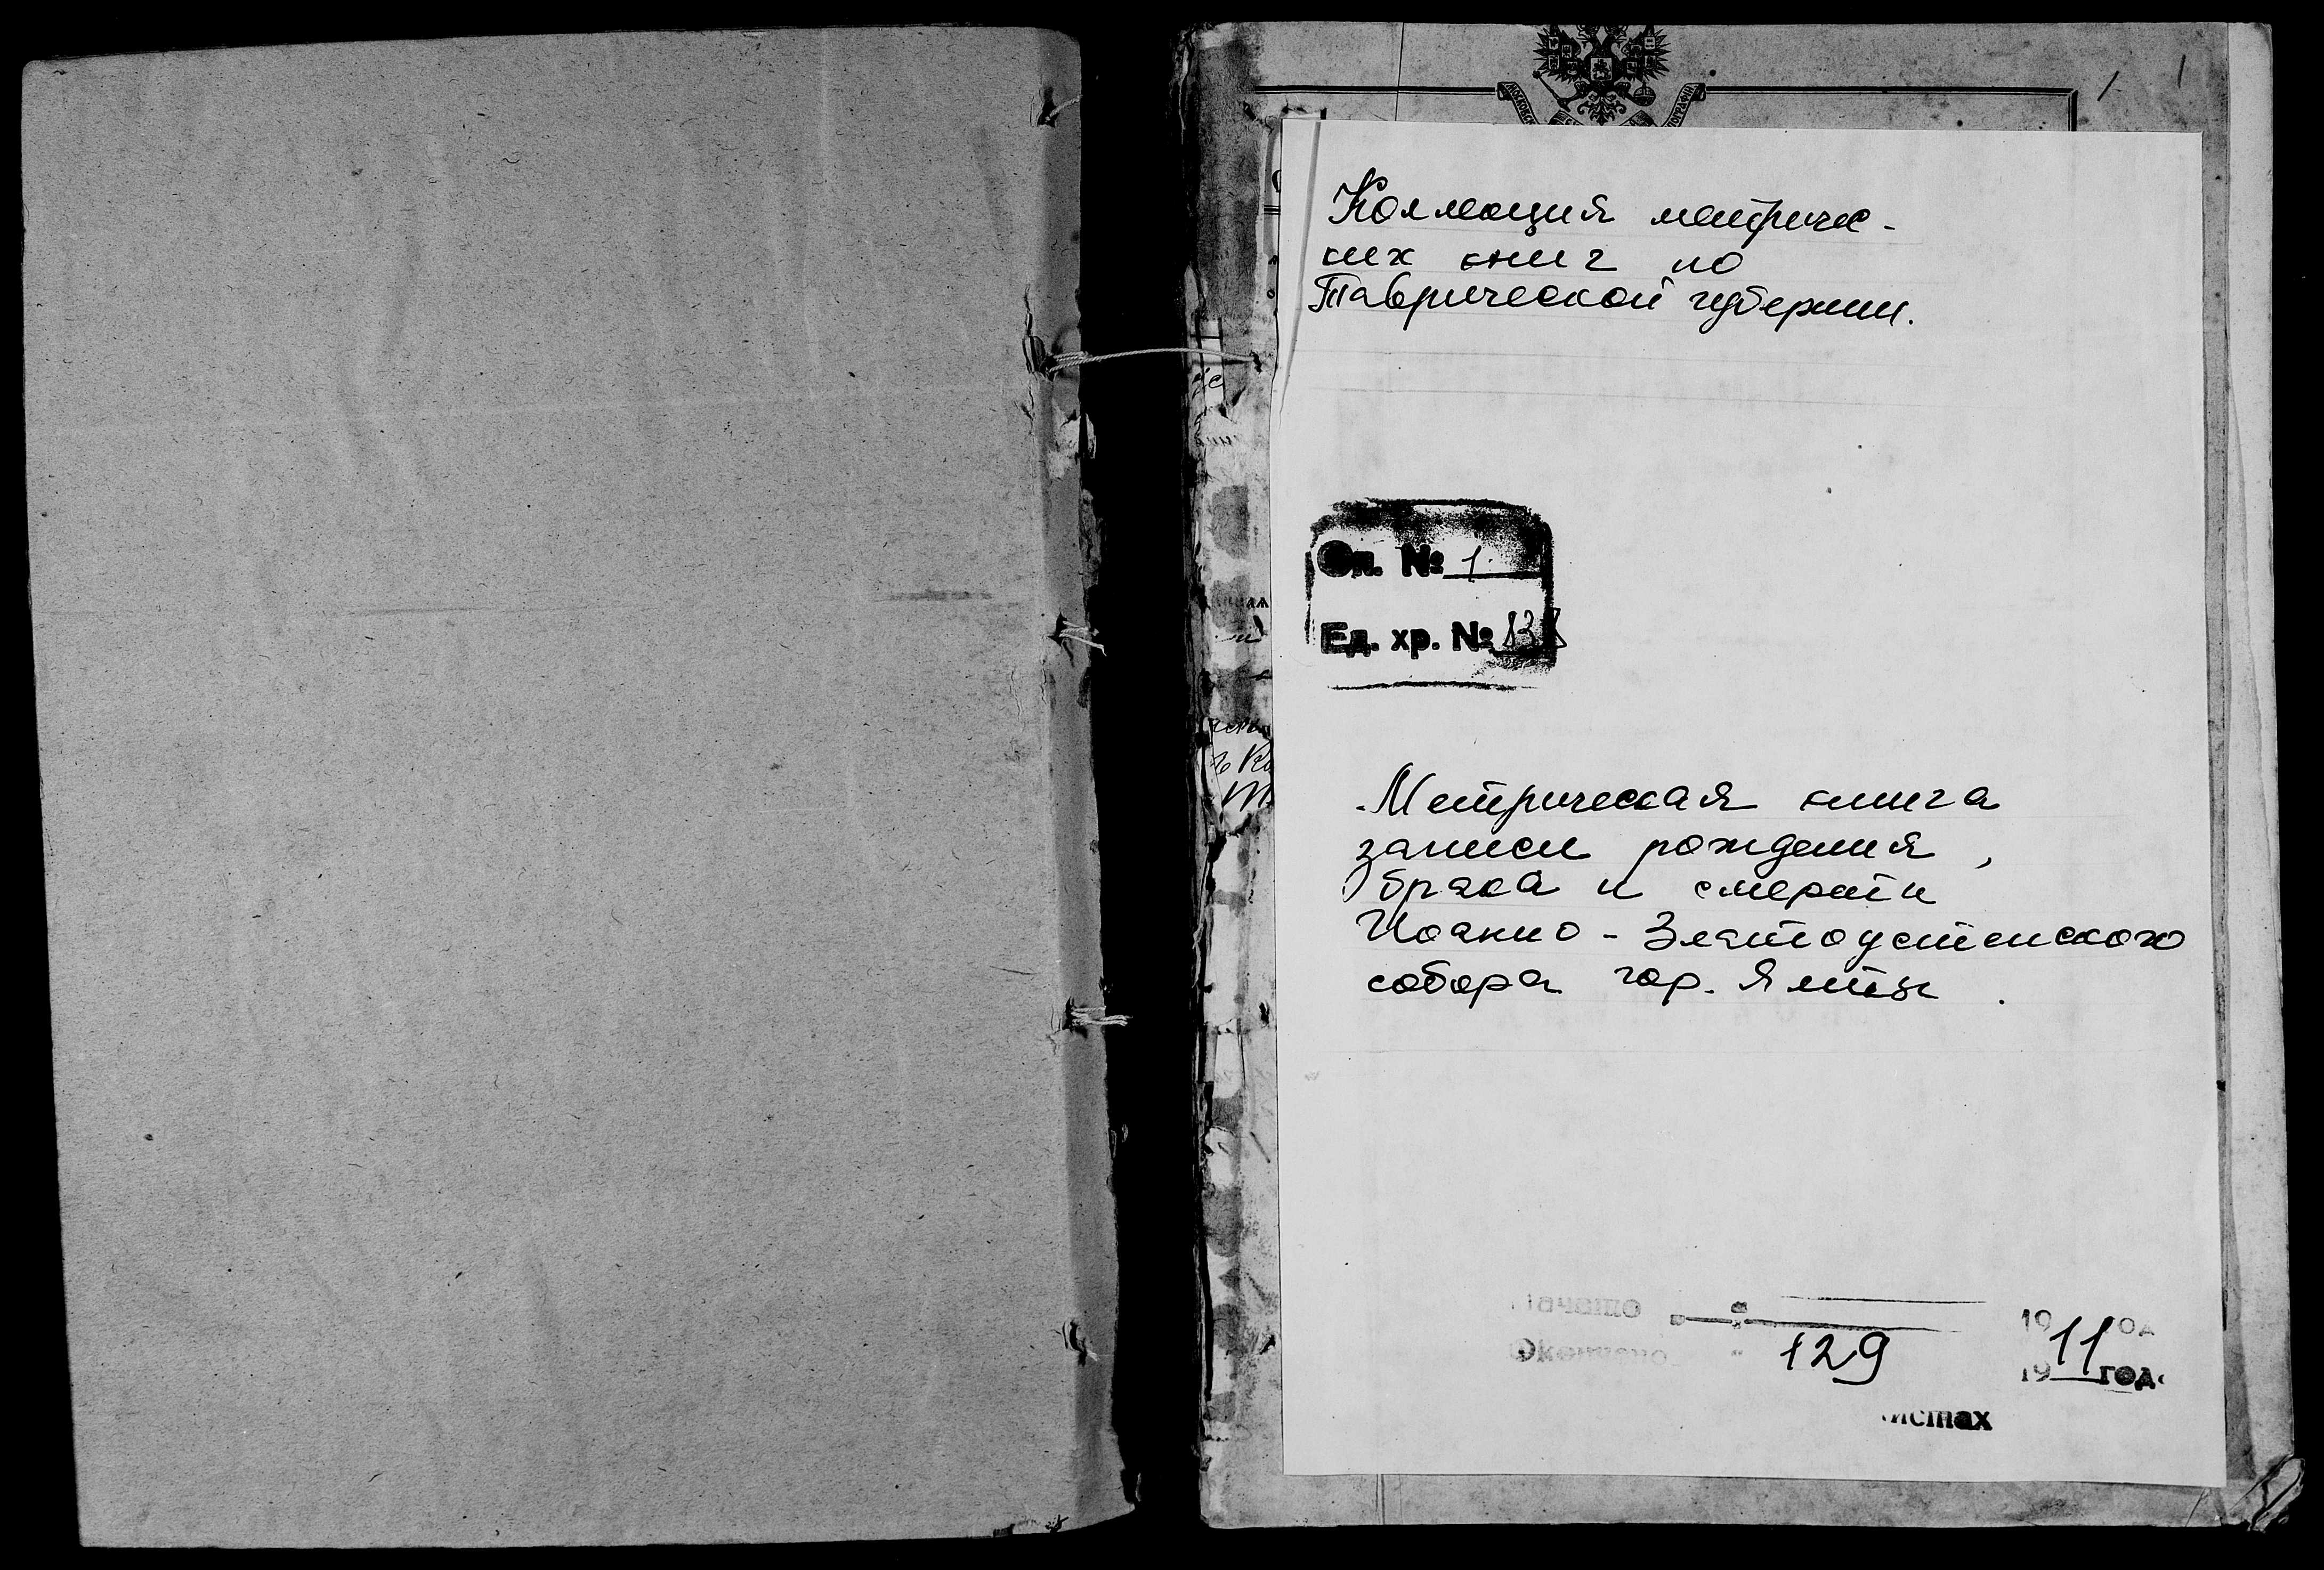 Коллекция метричес-
ких книг по
Таврической губернии.
Оп. № 1.
Ед. хр. №
Метрическая книга
записи рождения,
брака и смерти
Иоанно-Златоустенского
собора гор. Ялты.
Начато 19 11 год
Окончено 129 19 год
листах